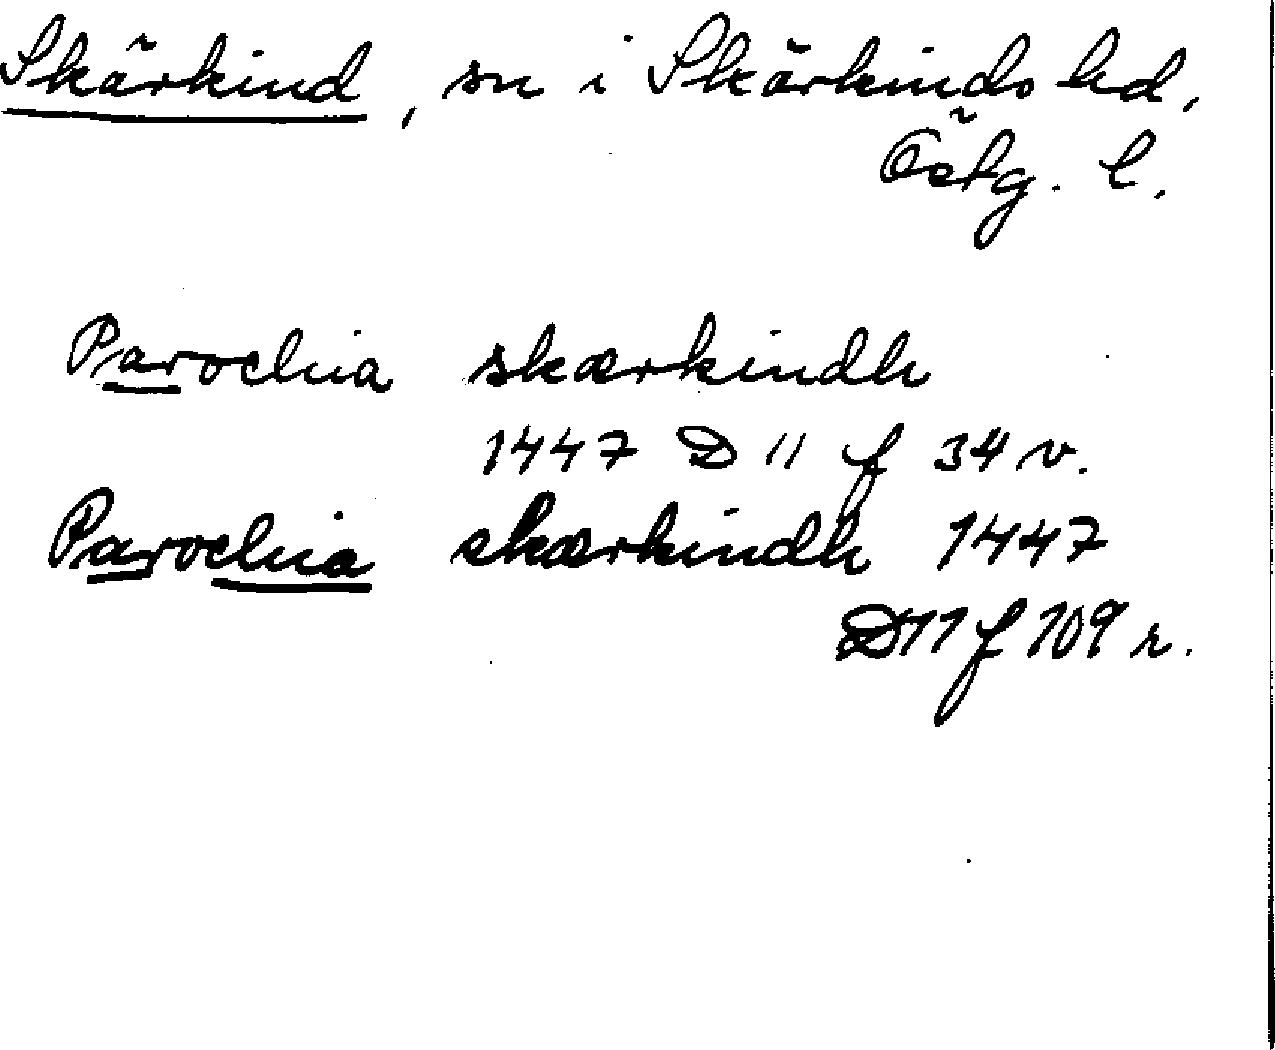 Skärkind, sn i Skärkinds hd,
Östg. l.
Parochia skærkindh
1447 D 11 f 34 v.
Parochia skærkindh 1447
D 11 f 109 r.